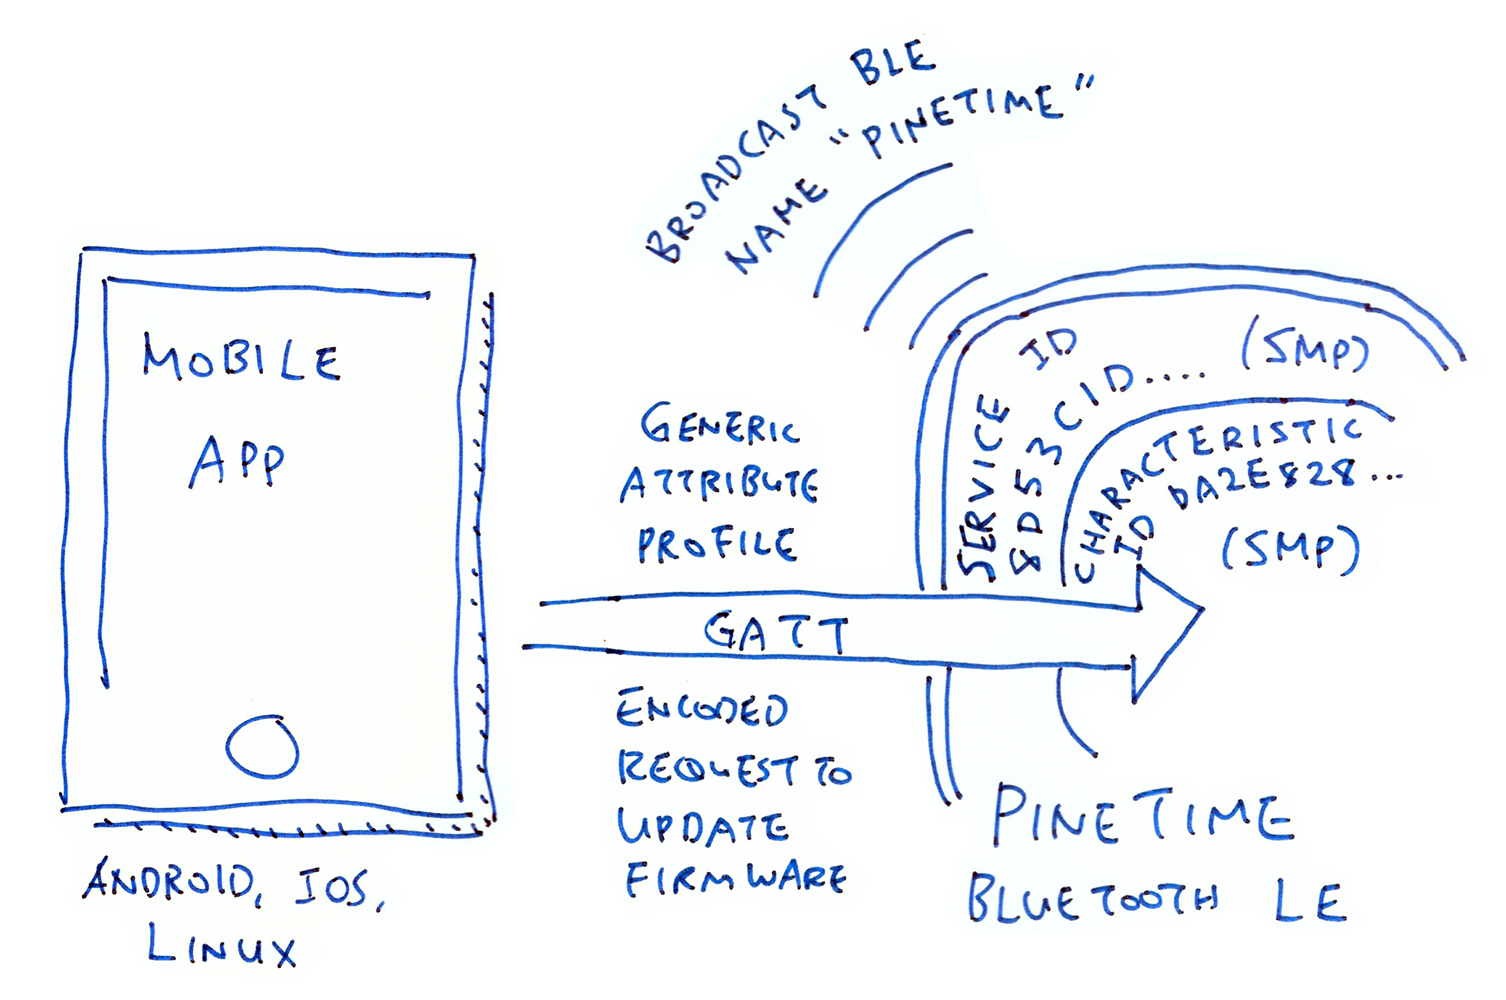 BROADCAST BLE
NAME "PINETIME"
MOBILE
APP
ANDROID, IOS,
LINUX
GENERIC
ATTRIBUTE
PROFILE
GATT
ENCODED
REQUEST TO
UPDATE
FIRMWARE
SERVICE ID
8D53CID.... (SMP)
CHARACTERISTIC
ID DA2E828...
(SMP)
PINETIME
BLUETOOTH LE